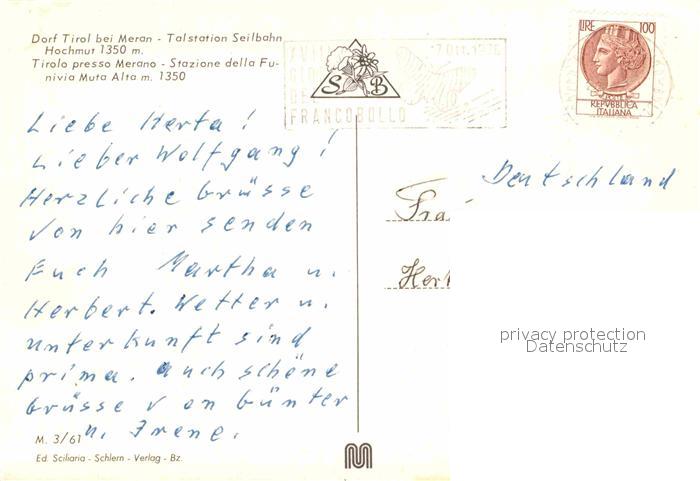 Dorf Tirol bei Meran - Talstation Seilbahn
Hochmut 1350 m.
Tirolo presso Merano - Stazione della Fu-
nivia Muta Alta m. 1350
FRANCOBOLLO
S B
LIRE 100
REPVBBLICA
ITALIANA
Liebe Herta!
Lieber Wolfgang!
Herzliche Grüsse
von hier senden
Euch Martha u.
Herbert. Wetter u.
Unterkunft sind
prima. Auch schöne
Grüsse von Günter
u. Irene.
Deutschland
Fra
Hert
privacy protection
Datenschutz
M. 3/61
Ed. Sciliaria - Schlern - Verlag - Bz.